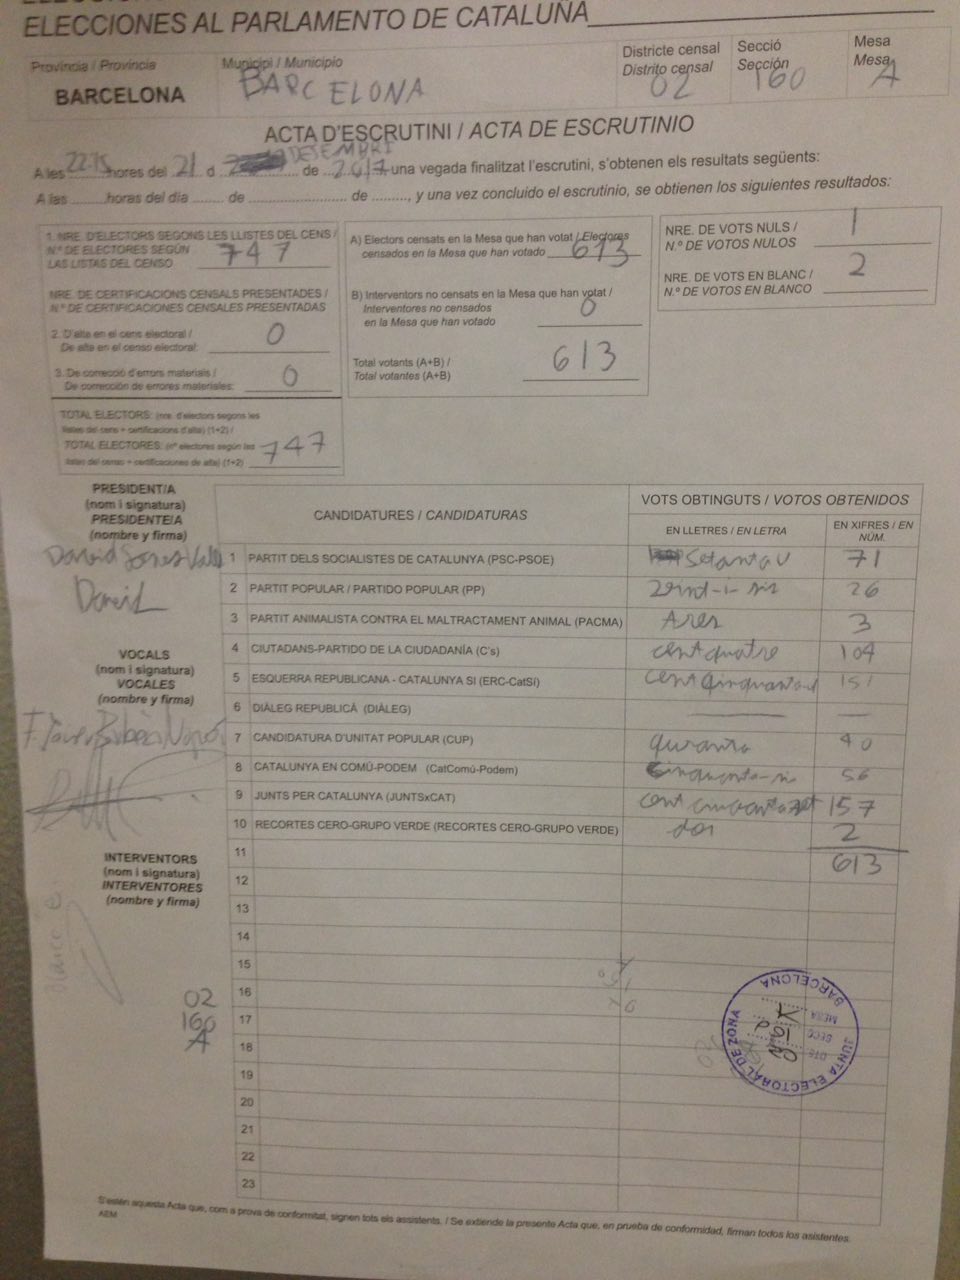 ELECCIONES AL PARLAMENTO DE CATALUÑA
Província / Provincia
BARCELONA
Municipi / Municipio
BARCELONA
Districte censal
Distrito censal
02
Secció
Sección
160
Mesa
Mesa
A
ACTA D'ESCRUTINI / ACTA DE ESCRUTINIO
A les 22:15 hores del 21 d DESEMBRE de 2017 una vegada finalitzat l'escrutini, s'obtenen els resultats següents:
A las ........ horas del día ........ de ........................ de ........, y una vez concluido el escrutinio, se obtienen los siguientes resultados:
1. NRE. D'ELECTORS SEGONS LES LLISTES DEL CENS /
N.º DE ELECTORES SEGÚN
LAS LISTAS DEL CENSO 747
NRE. DE CERTIFICACIONS CENSALS PRESENTADES /
N.º DE CERTIFICACIONES CENSALES PRESENTADAS
2. D'alta en el cens electoral /
De alta en el censo electoral: 0
3. De correcció d'errors materials /
De corrección de errores materiales: 0
TOTAL ELECTORS: (nre. d'electors segons les
llistes del cens + certificacions d'alta) (1+2) /
TOTAL ELECTORES: (nº electores según las
listas del censo + certificaciones de alta) (1+2) 747
A) Electors censats en la Mesa que han votat / Electores
censados en la Mesa que han votado 613
B) Interventors no censats en la Mesa que han votat /
Interventores no censados
en la Mesa que han votado 0
Total votants (A+B) /
Total votantes (A+B) 613
NRE. DE VOTS NULS /
N.º DE VOTOS NULOS 1
NRE. DE VOTS EN BLANC /
N.º DE VOTOS EN BLANCO 2
PRESIDENT/A
(nom i signatura)
PRESIDENTE/A
(nombre y firma)
David
David
VOCALS
(nom i signatura)
VOCALES
(nombre y firma)
INTERVENTORS
(nom i signatura)
INTERVENTORES
(nombre y firma)
02
160
A
CANDIDATURES / CANDIDATURAS
VOTS OBTINGUTS / VOTOS OBTENIDOS
EN LLETRES / EN LETRA
EN XIFRES / EN NÚM.
1 PARTIT DELS SOCIALISTES DE CATALUNYA (PSC-PSOE) Setanta u 71
2 PARTIT POPULAR / PARTIDO POPULAR (PP) Vint-i-sis 26
3 PARTIT ANIMALISTA CONTRA EL MALTRACTAMENT ANIMAL (PACMA) 3
4 CIUTADANS-PARTIDO DE LA CIUDADANÍA (C's) cent quatre 104
5 ESQUERRA REPUBLICANA - CATALUNYA SÍ (ERC-CatSí) cent cinquanta u 151
6 DIÀLEG REPUBLICÀ (DIÀLEG) — —
7 CANDIDATURA D'UNITAT POPULAR (CUP) quranta 40
8 CATALUNYA EN COMÚ-PODEM (CatComú-Podem) Cinquanta-sis 56
9 JUNTS PER CATALUNYA (JUNTSxCAT) cent cinquanta set 157
10 RECORTES CERO-GRUPO VERDE (RECORTES CERO-GRUPO VERDE) dos 2
11 613
12
13
14
15
16
17
18
19
20
21
22
23
JUNTA ELECTORAL DE ZONA
BARCELONA
DTE.
SECC
160
MESA
A
S'estén aquesta Acta que, com a prova de conformitat, signen tots els assistents. / Se extiende la presente Acta que, en prueba de conformidad, firman todos los asistentes.
AEM